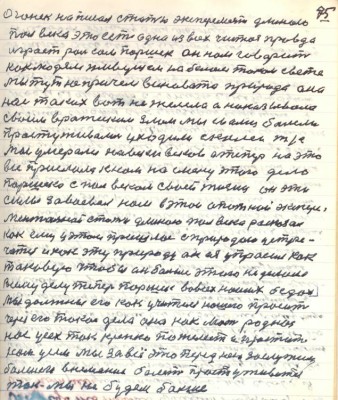 75
Огонек написал статю экперемент длиною
пол века это есть одна из всех читая правда
играет рол сам поршек он нам говорит
как людям живущем на белом таком свете
мы тут не причем виновата природа она
нас таких вот не жалела а наказывала
своим вражеским злом мы с вами болели
простуживалис уходили
мы умерали на веки веков а тепер на это
все прислала к нам на смену этого дело
поршека с пол веком своей жизни он эти
силы завоевал нам в этой опотной экспере,
ментакой стати длиною пол века расказал
как ему у этом пришлос с природою устре-
чатся и как эту природу он упрасил как
таковую чтобы она бально этого не делала
тепер поршек во всех наших бедах
мы должны его как учителя нашого просить
через его такое дела она как мать родная
нас усех так крепко пожалеет и простит
нам усем мы за всё это перед ней заслужим
большого внимания болеть простуживатся
так мы не будем больше